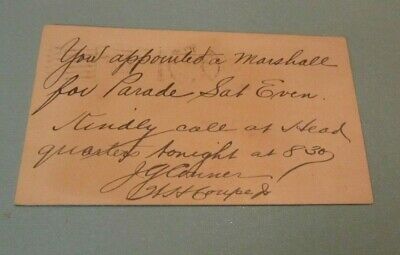 You appointed a Marshall
for Parade Sat Even.
Kindly call at Head
quarters tonight at 8 30
J G Conner